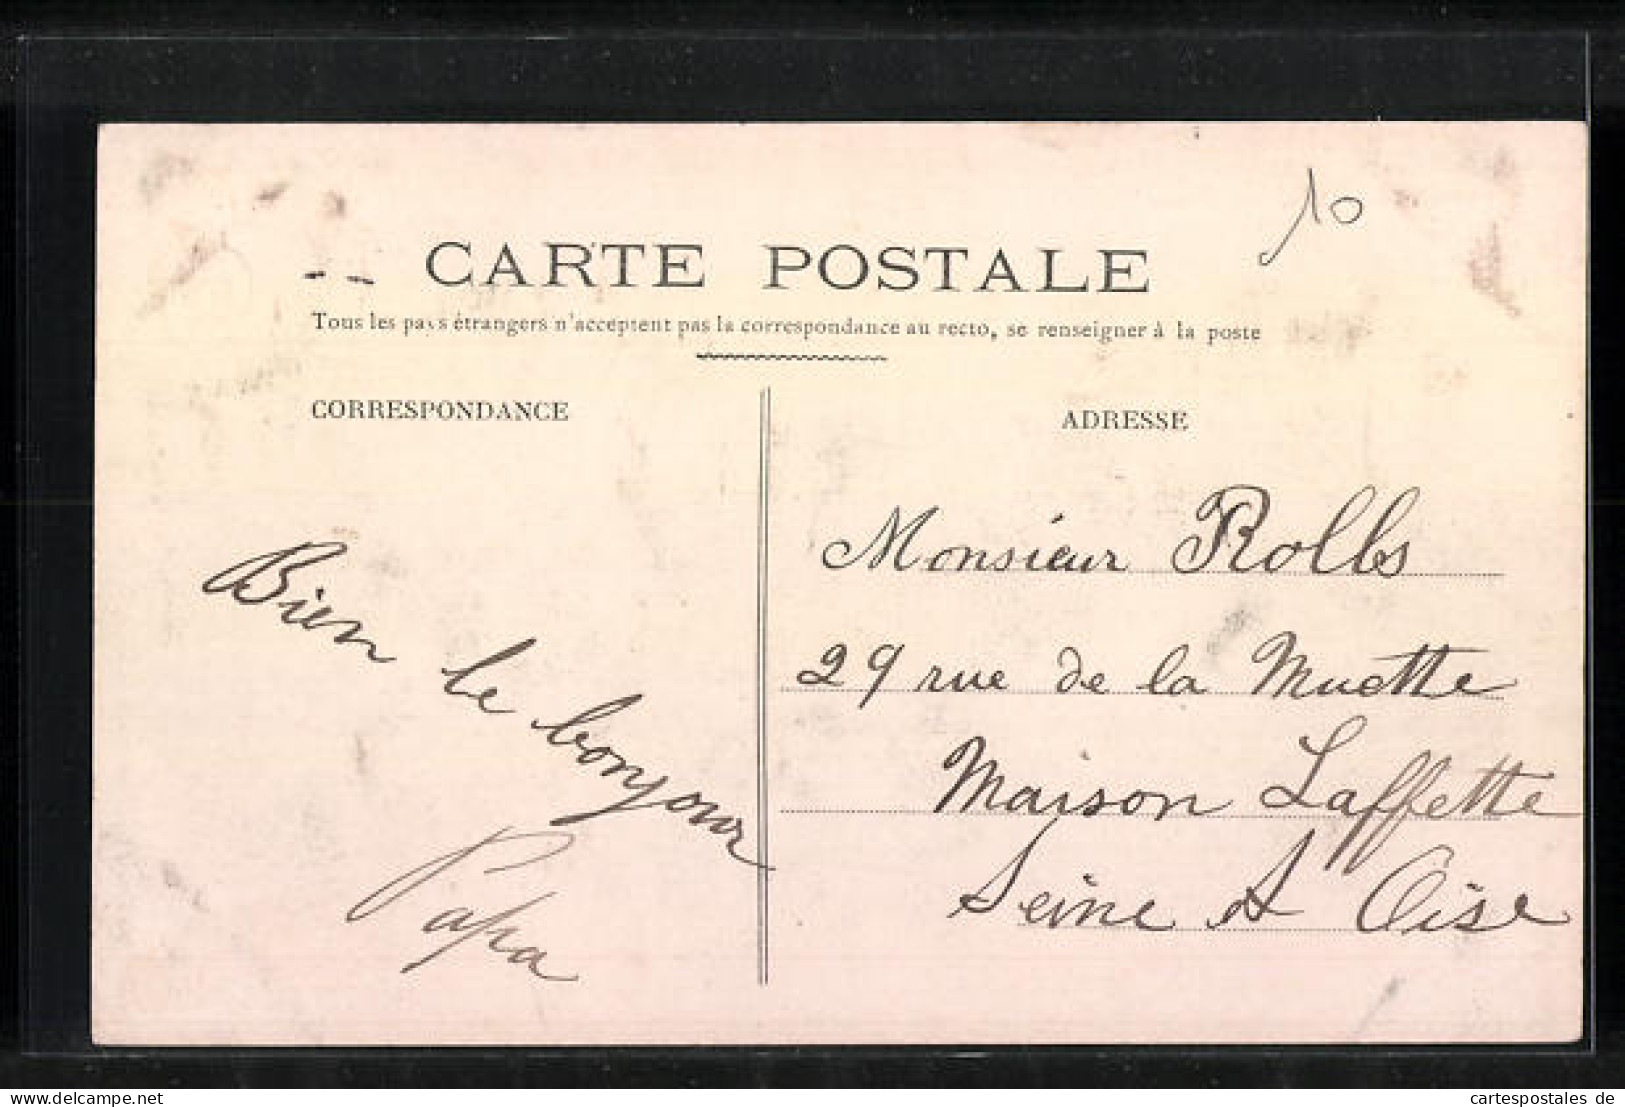 10
CARTE POSTALE
Tous les pays étrangers n'acceptent pas la correspondance au recto, se renseigner à la poste
CORRESPONDANCE
Bien le bonjour
Papa
ADRESSE
Monsieur Rolls
29 rue de la Muette
Maison Laffette
Seine et Oise
delcampe.net
cartespostales de